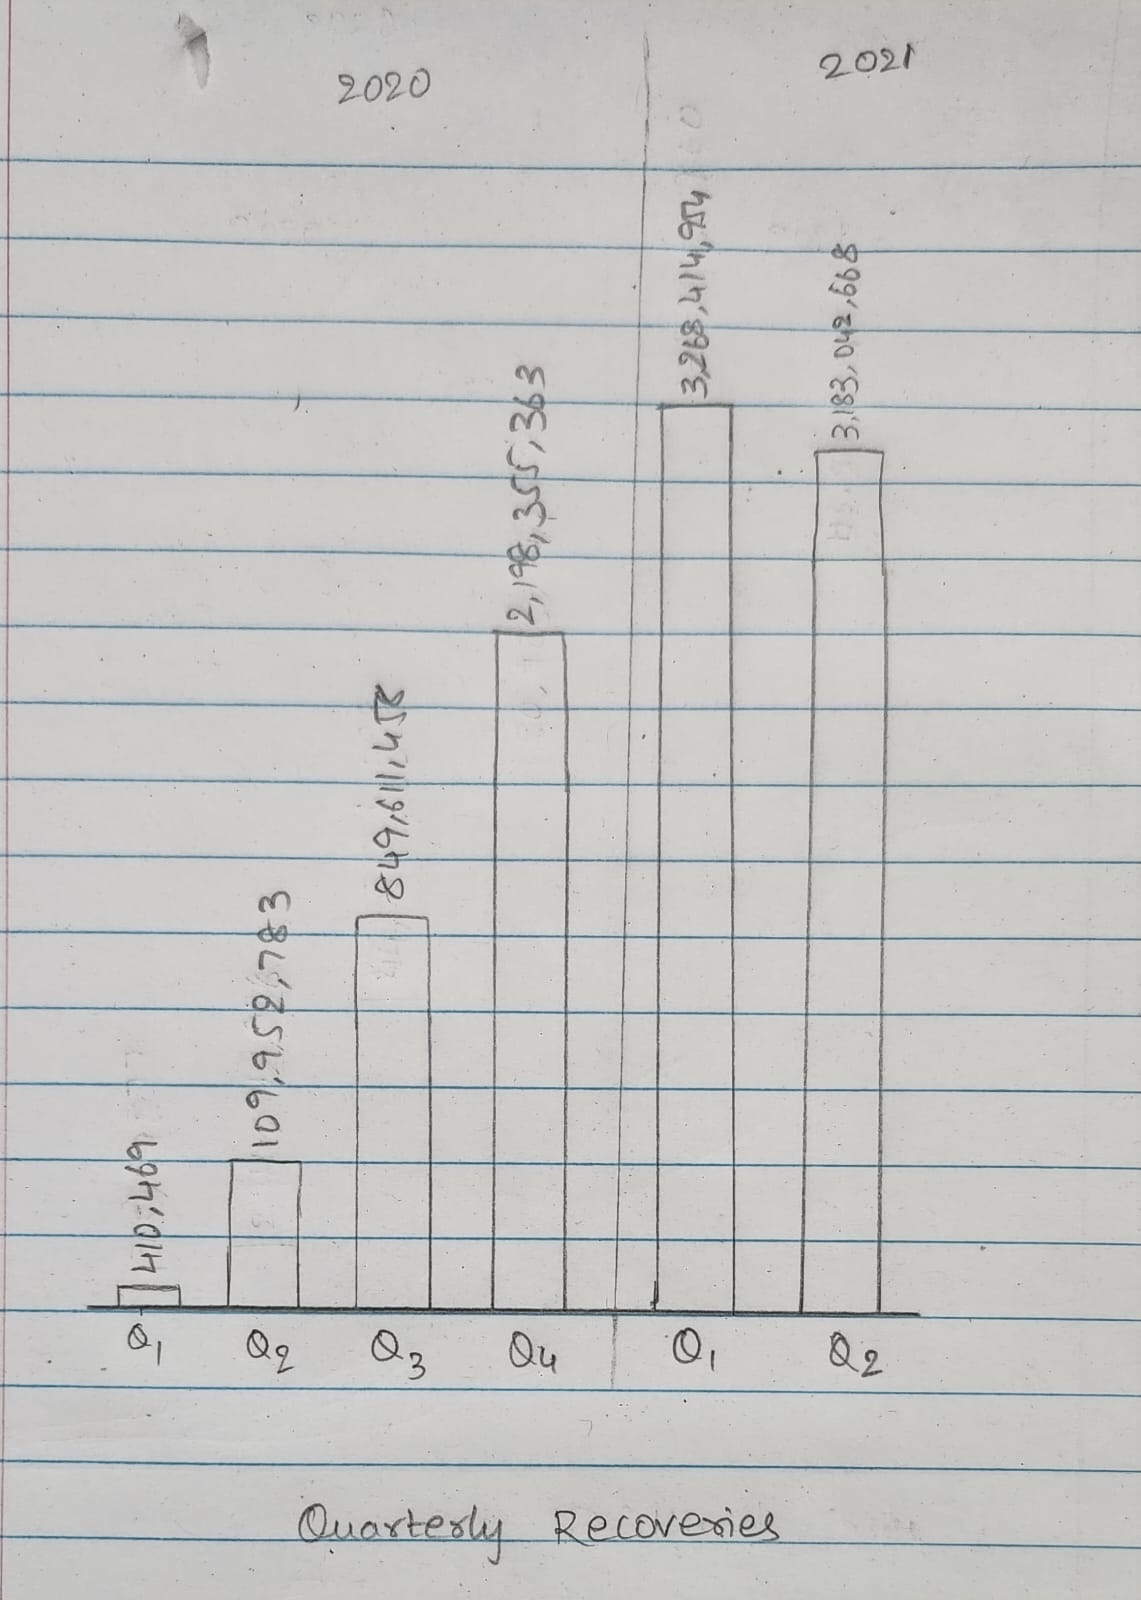 2020
2021
410,469
109,952,783
849,611,458
2,198,355,363
3,268,414,954
3,183,042,668
Q1
Q2
Q3
Q4
Q1
Q2
Quarterly Recoveries